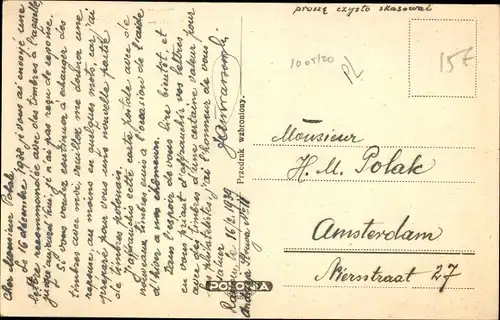 proszę czysto skasować
10.05/20
PL
15E
Monsieur
H. M. Polak
Amsterdam
Niersstraat 27
Cher Monsieur Polak
Le 16 décembre 1938 j'vous ai envoyé une
lettre recommandée avec des timbres à laquelle
jusqu'aujourd'hui je n'ai pas reçu de réponse.
Si vous voulez continuer à échanger des
timbres avec moi, veuillez me donner une
réponse, au moins en quelques mots, car j'ai
preparé pour vous une nouvelle partie
de timbres polonais.
J'affranchis cette carte postale avec de
nouveaux timbres émis à l'occasion de l'aide
d'hiver à nos chômeurs.
Dans l'espoir de vous lire bientôt, et
en vous priant d'affranchir vos lettres
avec des timbres d'une certaine valeur pour
un philatéliste, j'ai l'honneur de vous
saluer
16/2. 1939
Przedruk wzbroniony.
POLONIA